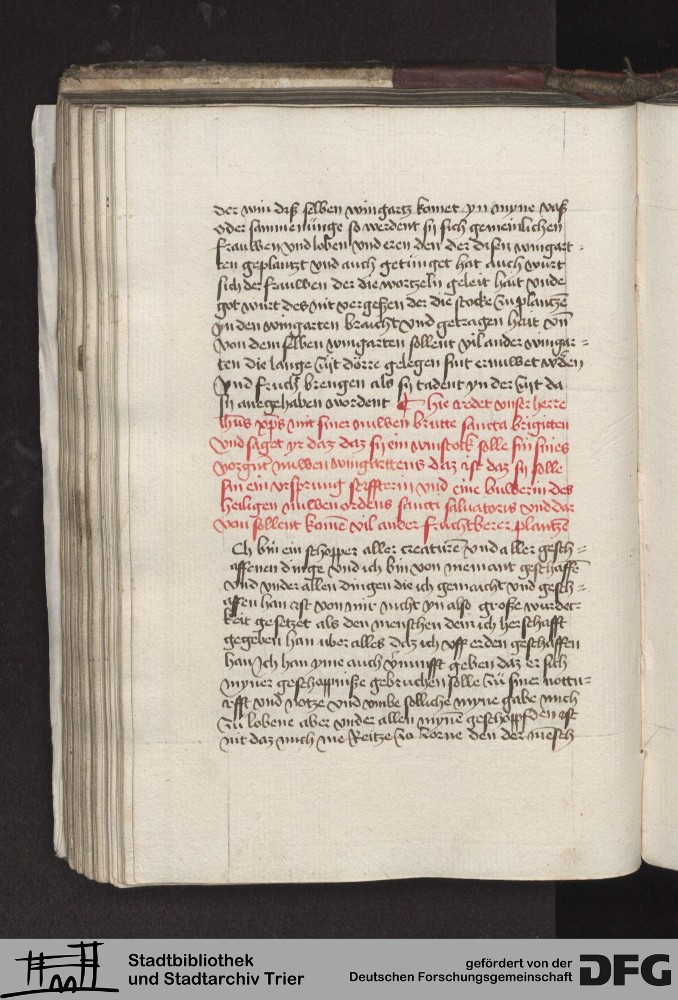 der win diß selben wingartz komet yn myne vaß
oder sammenünge so werdent sy sich gemeinlichen
frauwen vnd loben vnd eren den der disen wingart =
ten geplantzt vnd auch getünget hat Auch würt
sich der frauwen der die wortzeln geleit hait vnde
got würt des nit vergeßen der die stocke zü plantzē
yn den wingarten bracht vnd getragen hait vn̄
von dem selben wingarten sollent vil ander wingar =
ten die lange zijt dörre gelegen sint ernuwet wden
Vnd frucht brengen als sy tadent yn der zijt da
sy anegehaben wordent Hie redet vnser herre
ihūs xp̄s mit siner nuwen brutte sancta brigitten
vnd saget yr daz daz sy ein winstock solle sin sines
nuwen wingarttens daz ist daz sy solle
sin ein vrsprung stiffterin vnd eine buwerin des
heiligen nuwen ordens sancti saluatoris vnd dar
von sollent komē vil ander fruchtberer plantzē
Ch bin ein schopper aller creaturē vnd aller gesch =
affenen dinge vnd ich bin von nemant geschaffē
vnd vnder allen dingen die ich gemacht vnd gesch =
affen han ist von mir nicht yn also große wirdec-
keit gesetzet als den menschen dem ich herschafft
gegeben han uber alles daz ich vff erden geschaffen
han Ich han yme auch v̄nunfft geben daz er sich
myner geschoppniße gebruchen solle zü siner nottu =
rfft vnd notze vnd vmbe solliche myne gabe mich
zü lobene aber vnder allen mynē geschöpffden ist
nit daz mich me Reitze zo zorne den der mēsch
Stadtbibliothek
und Stadtarchiv Trier
gefördert von der
Deutschen Forschungsgemeinschaft
DFG